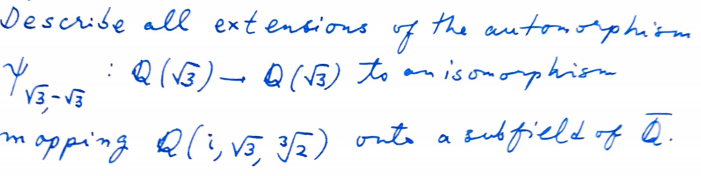 Describe all extensions of the automorphism
ψ_{√3,-√3} : Q(√3) → Q(√3) to an isomorphism
mapping Q(i, √3, ∛2) onto a subfield of Q̅.